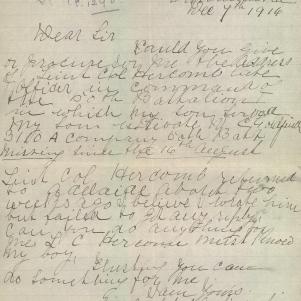 Dec 7th 1916
Dear Sir
Could you give
or procure for me the address
of Lieut Col Hercomb late
officer in command of
the 50th Battalion
in which my son
my son Private
3180 A company 50th Batt
missing since the 16th August
Lieut Col Hercomb returned
to Adelaide about two
weeks ago I believe I wrote him
but failed to get any reply
Can you do anything for
me L C Hercomb must know
my boy,
Trusting you can
do something for me
Yours